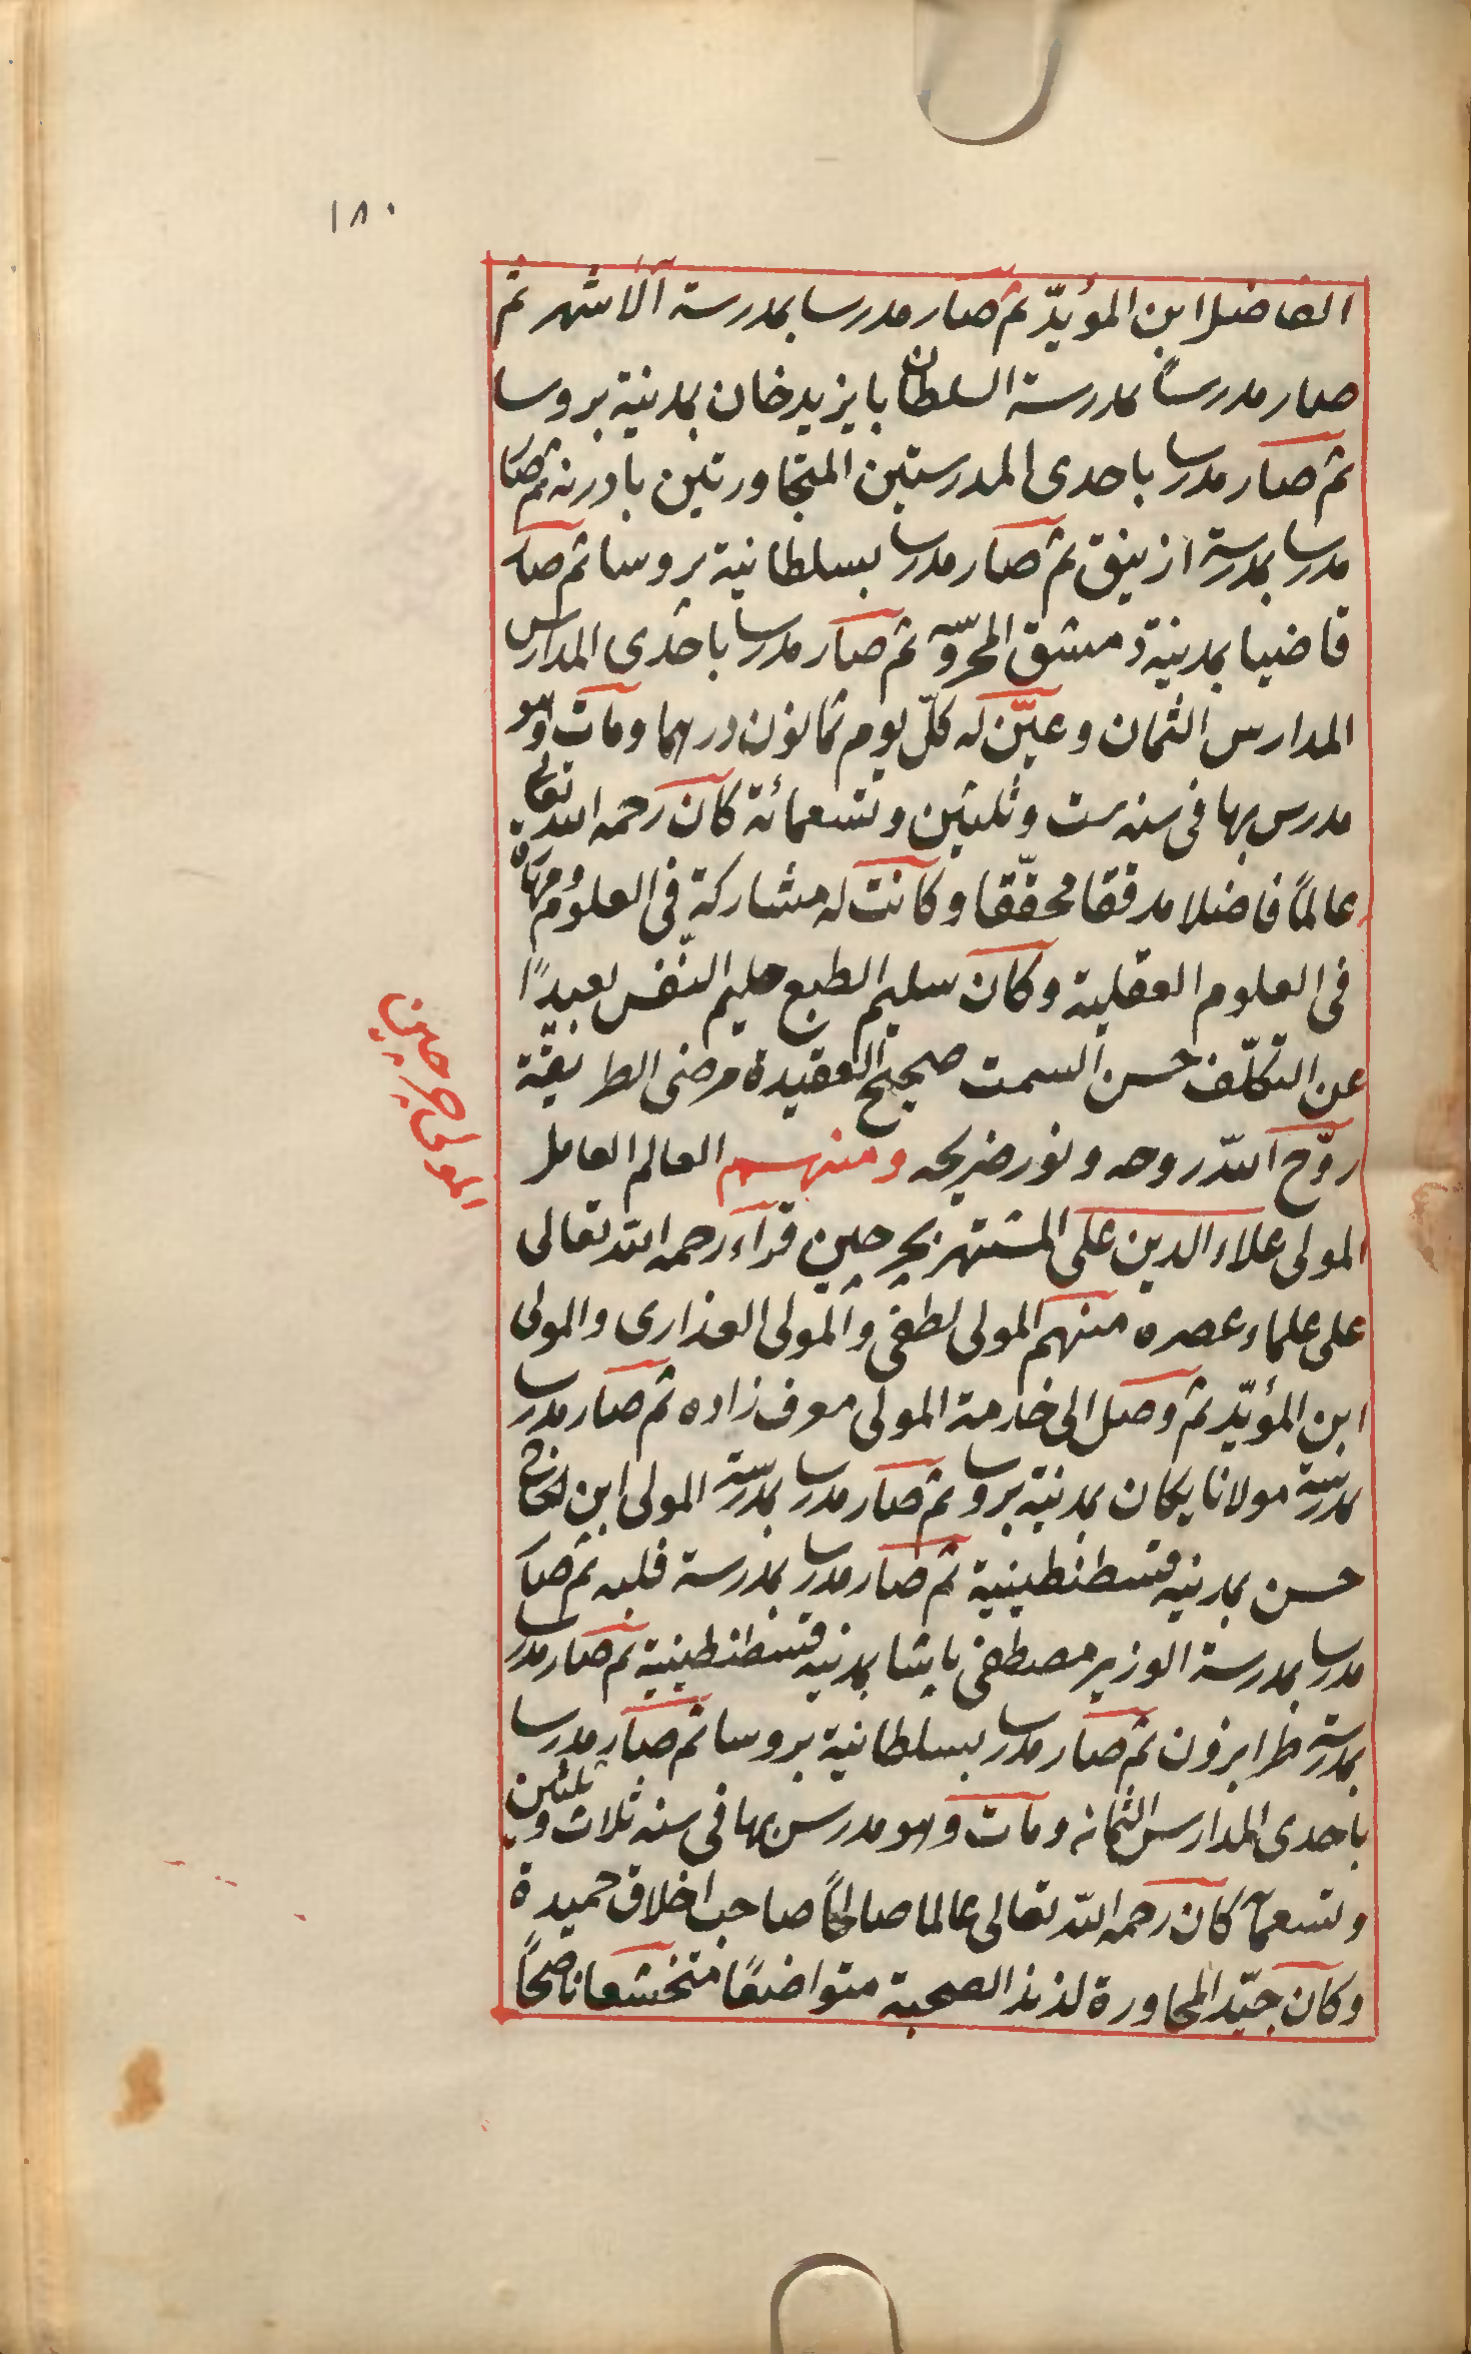 ١٨٠
الفاضل ابن المؤيّد ثم صار مدرسا بمدرسة آلاشهر ثم
صار مدرساً بمدرسة السلطان بايزيد خان بمدينة بروسا
ثم صار مدرسا باحدى المدرستين المتجاورتين بادرنه ثم صار
مدرسا بمدرسة ازنيق ثم صار مدرسا بسلطانية بروسا ثم صار
قاضيا بمدينة دمشق المحروسة ثم صار مدرسا باحدى المدارس
المدارس الثمان وعيّن له كلّ يوم ثمانون درهما ومات وهو
مدرس بها فى سنه ست وثلثين وتسعمائة كان رحمه الله تعالى
عالماً فاضلا مدققا محقّقا وكانت له مشاركة فى العلوم ومهارة
فى العلوم العقلية وكان سليم الطبع حليم النّفس بعيدًا
عن التكلّف حسن السمت صحيح العقيدة مرضى الطريقة
روّح الله روحه ونور ضريحه ومنهم العالم العامل
المولى علاء الدين على المشتهر بجرجين قراء رحمه الله تعالى
المولى جرجين
على علماء عصره منهم المولى لطفى والمولى العذارى والمولى
ابن المؤيّد ثم وصل الى خدمة المولى معرف زاده ثم صار مدرسا
بمدرسة مولانا يكان بمدينة بروسا ثم صار مدرسا بمدرسة المولى ابن الحاج
حسن بمدينه قسطنطينية ثم صار مدرسا بمدرسة فلبه ثم صار
مدرسا بمدرسة الوزير مصطفى باشا بمدينه قسطنطينية ثم صار مدرسا
بمدرسة طرابزون ثم صار مدرسا بسلطانية بروسا ثم صار مدرسا
باحدى المدارس الثمانه ومات وهو مدرس بها فى سنه ثلاث وثلثين
وتسعمآ كان رحمه الله تعالى عالما صالحاً صاحب اخلاق حميدة
وكان جيّد المحاورة لذيذ الصحبة متواضعًا متخشعا ناصحاً